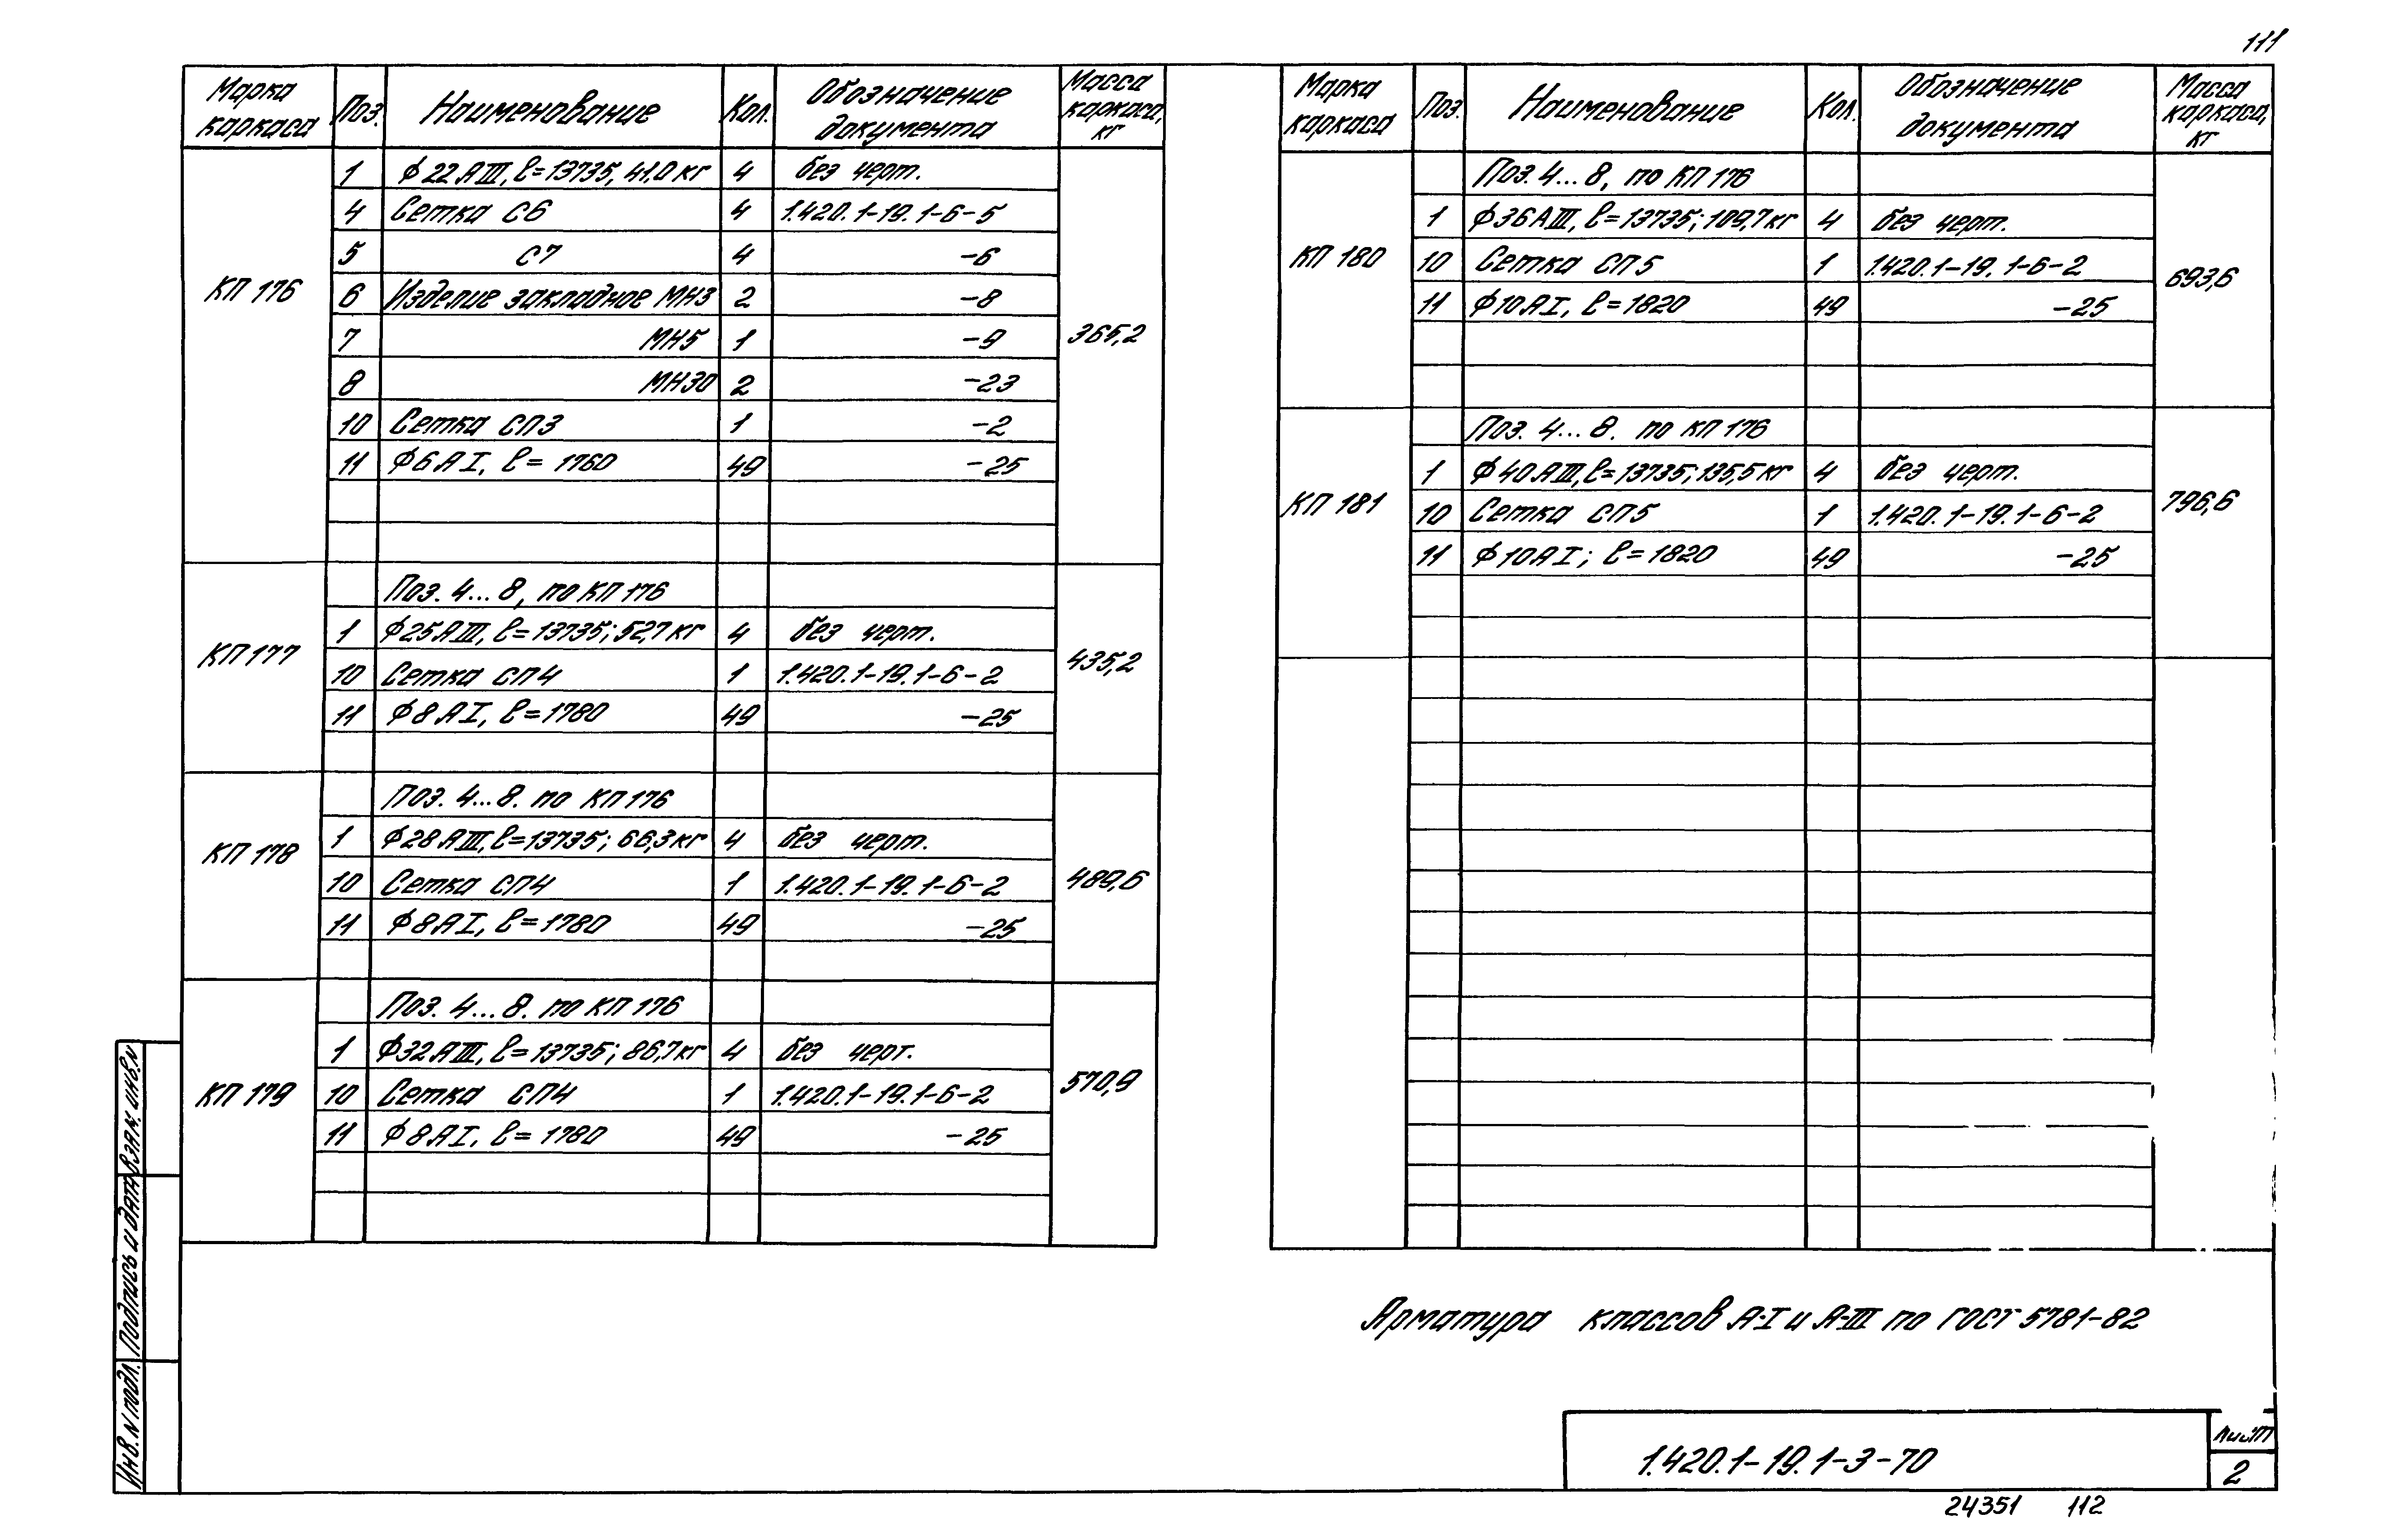 111
Марка каркаса | Поз. | Наименование | Кол. | Обозначение документа | Масса каркаса, кг
КП 176 | 365,2
1 | ф22АIII, ℓ=13735, 41,0 кг | 4 | без черт.
4 | Сетка С6 | 4 | 1.420.1-19.1-6-5
5 | С7 | 4 | -6
6 | Изделие закладное МН3 | 2 | -8
7 | МН5 | 1 | -9
8 | МН30 | 2 | -23
10 | Сетка СП3 | 1 | -2
11 | ф6АI, ℓ=1760 | 49 | -25
КП 177 | 435,2
Поз. 4...8, по КП 176
1 | ф25АIII, ℓ=13735; 52,7 кг | 4 | без черт.
10 | Сетка СП4 | 1 | 1.420.1-19.1-6-2
11 | ф8АI, ℓ=1780 | 49 | -25
КП 178 | 489,6
Поз. 4...8. по КП 176
1 | ф28АIII, ℓ=13735; 66,3 кг | 4 | без черт.
10 | Сетка СП4 | 1 | 1.420.1-19.1-6-2
11 | ф8АI, ℓ=1780 | 49 | -25
КП 179 | 570,9
Поз. 4...8. по КП 176
1 | ф32АIII, ℓ=13735; 86,7 кг | 4 | без черт.
10 | Сетка СП4 | 1 | 1.420.1-19.1-6-2
11 | ф8АI, ℓ=1780 | 49 | -25
Марка каркаса | Поз. | Наименование | Кол. | Обозначение документа | Масса каркаса, кг
КП 180 | 693,6
Поз. 4...8, по КП 176
1 | ф36АIII, ℓ=13735; 109,7 кг | 4 | без черт.
10 | Сетка СП5 | 1 | 1.420.1-19.1-6-2
11 | ф10АI, ℓ=1820 | 49 | -25
КП 181 | 796,6
Поз. 4...8. по КП 176
1 | ф40АIII, ℓ=13735; 135,5 кг | 4 | без черт.
10 | Сетка СП5 | 1 | 1.420.1-19.1-6-2
11 | ф10АI; ℓ=1820 | 49 | -25
Арматура классов А-I и А-III по ГОСТ 5781-82
Инв. N подл. Подпись и дата Взам. инв. N
1.420.1-19.1-3-70
Лист
2
24351 112